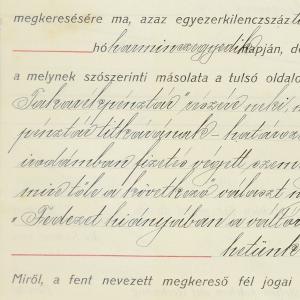 megkeresésére ma, azaz egyezerkilenczszáz
hó harminczegyedik napján, d
a melynek szószerinti másolata a tulsó oldalo
Takarékpénztár" részére neki,
pénztár titkárának - határoz
irodámban fizetés végett szem
mire tőle a következő választ
"Fedezet hiányában a váltó
hetünk
Miről, a fent nevezett megkereső fél jogai